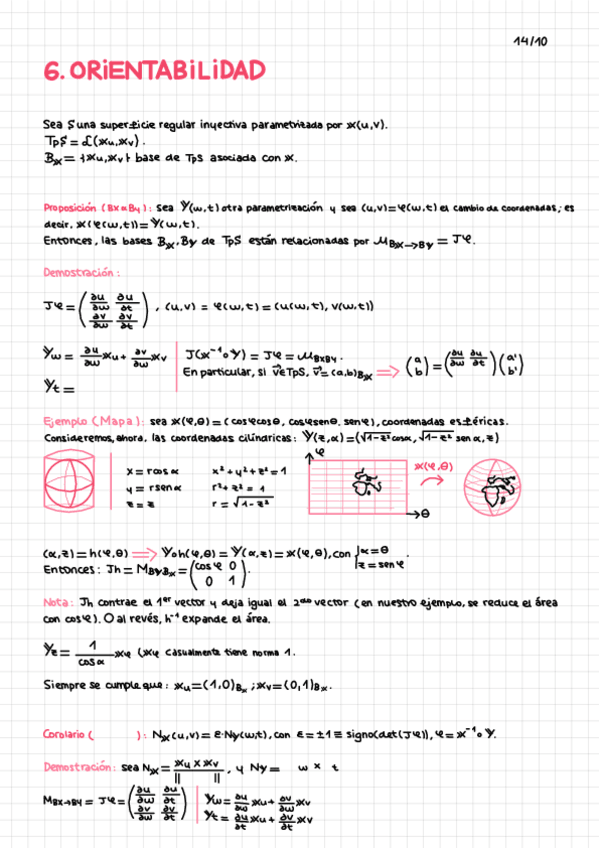 14/10
6. ORIENTABILIDAD
Sea S una superficie regular inyectiva parametrizada por x(u,v).
TpS = L(xu,xv).
Bx = {xu,xv} base de TpS asociada con x.
Proposición (Bx∝By): Sea Y(w,t) otra parametrización y sea (u,v)=φ(w,t) el cambio de coordenadas; es
decir, x(φ(w,t)) = Y(w,t).
Entonces, las bases Bx, By de TpS están relacionadas por M_{Bx→By} = Jφ.
Demostración:
Jφ = (∂u/∂w ∂u/∂t ; ∂v/∂w ∂v/∂t), (u,v) = φ(w,t) = (u(w,t), v(w,t))
Yw = ∂u/∂w xu + ∂v/∂w xv
J(x⁻¹∘Y) = Jφ = M_{BxBy}.
En particular, si v⃗ε TpS, v⃗ = (a,b)_{Bx} ⟹ (a b) = (∂u/∂w ∂u/∂t) (a' b')
Yt =
Ejemplo (Mapa): sea x(φ,θ) = (cosφcosθ, cosφsenθ, senφ), coordenadas esféricas.
Consideremos, ahora, las coordenadas cilíndricas: Y(z,α) = (√1-z² cosα, √1-z² sen α, z)
x = r cos α x²+y²+z² = 1
y = r sen α r²+z² = 1
z = z r = √1-z²
φ
x(φ,θ)
θ
(α,z) = h(φ,θ) ⟹ Y∘h(φ,θ) = Y(α,z) = x(φ,θ), con {α=θ z=senφ.
Entonces: Jh = M_{ByBx} = (cosφ 0 ; 0 1).
Nota: Jh contrae el 1er vector y deja igual el 2do vector (en nuestro ejemplo, se reduce el área
con cosφ). O al revés, h⁻¹ expande el área.
Yz = 1/cosα xφ (xφ casualmente tiene norma 1.
Siempre se cumple que: xu = (1,0)_{Bx}; xv = (0,1)_{Bx}.
Corolario ( ): Nx(u,v) = ε·Ny(w,t), con ε = ±1 ≡ signo(det(Jφ)), φ = x⁻¹∘Y.
Demostración: sea Nx = xu x xv / || ||, y Ny = w x t
M_{Bx→By} = Jφ = (∂u/∂w ∂u/∂t ; ∂v/∂w ∂v/∂t)
Yw = ∂u/∂w xu + ∂v/∂w xv
Yt = ∂u/∂t xu + ∂v/∂t xv